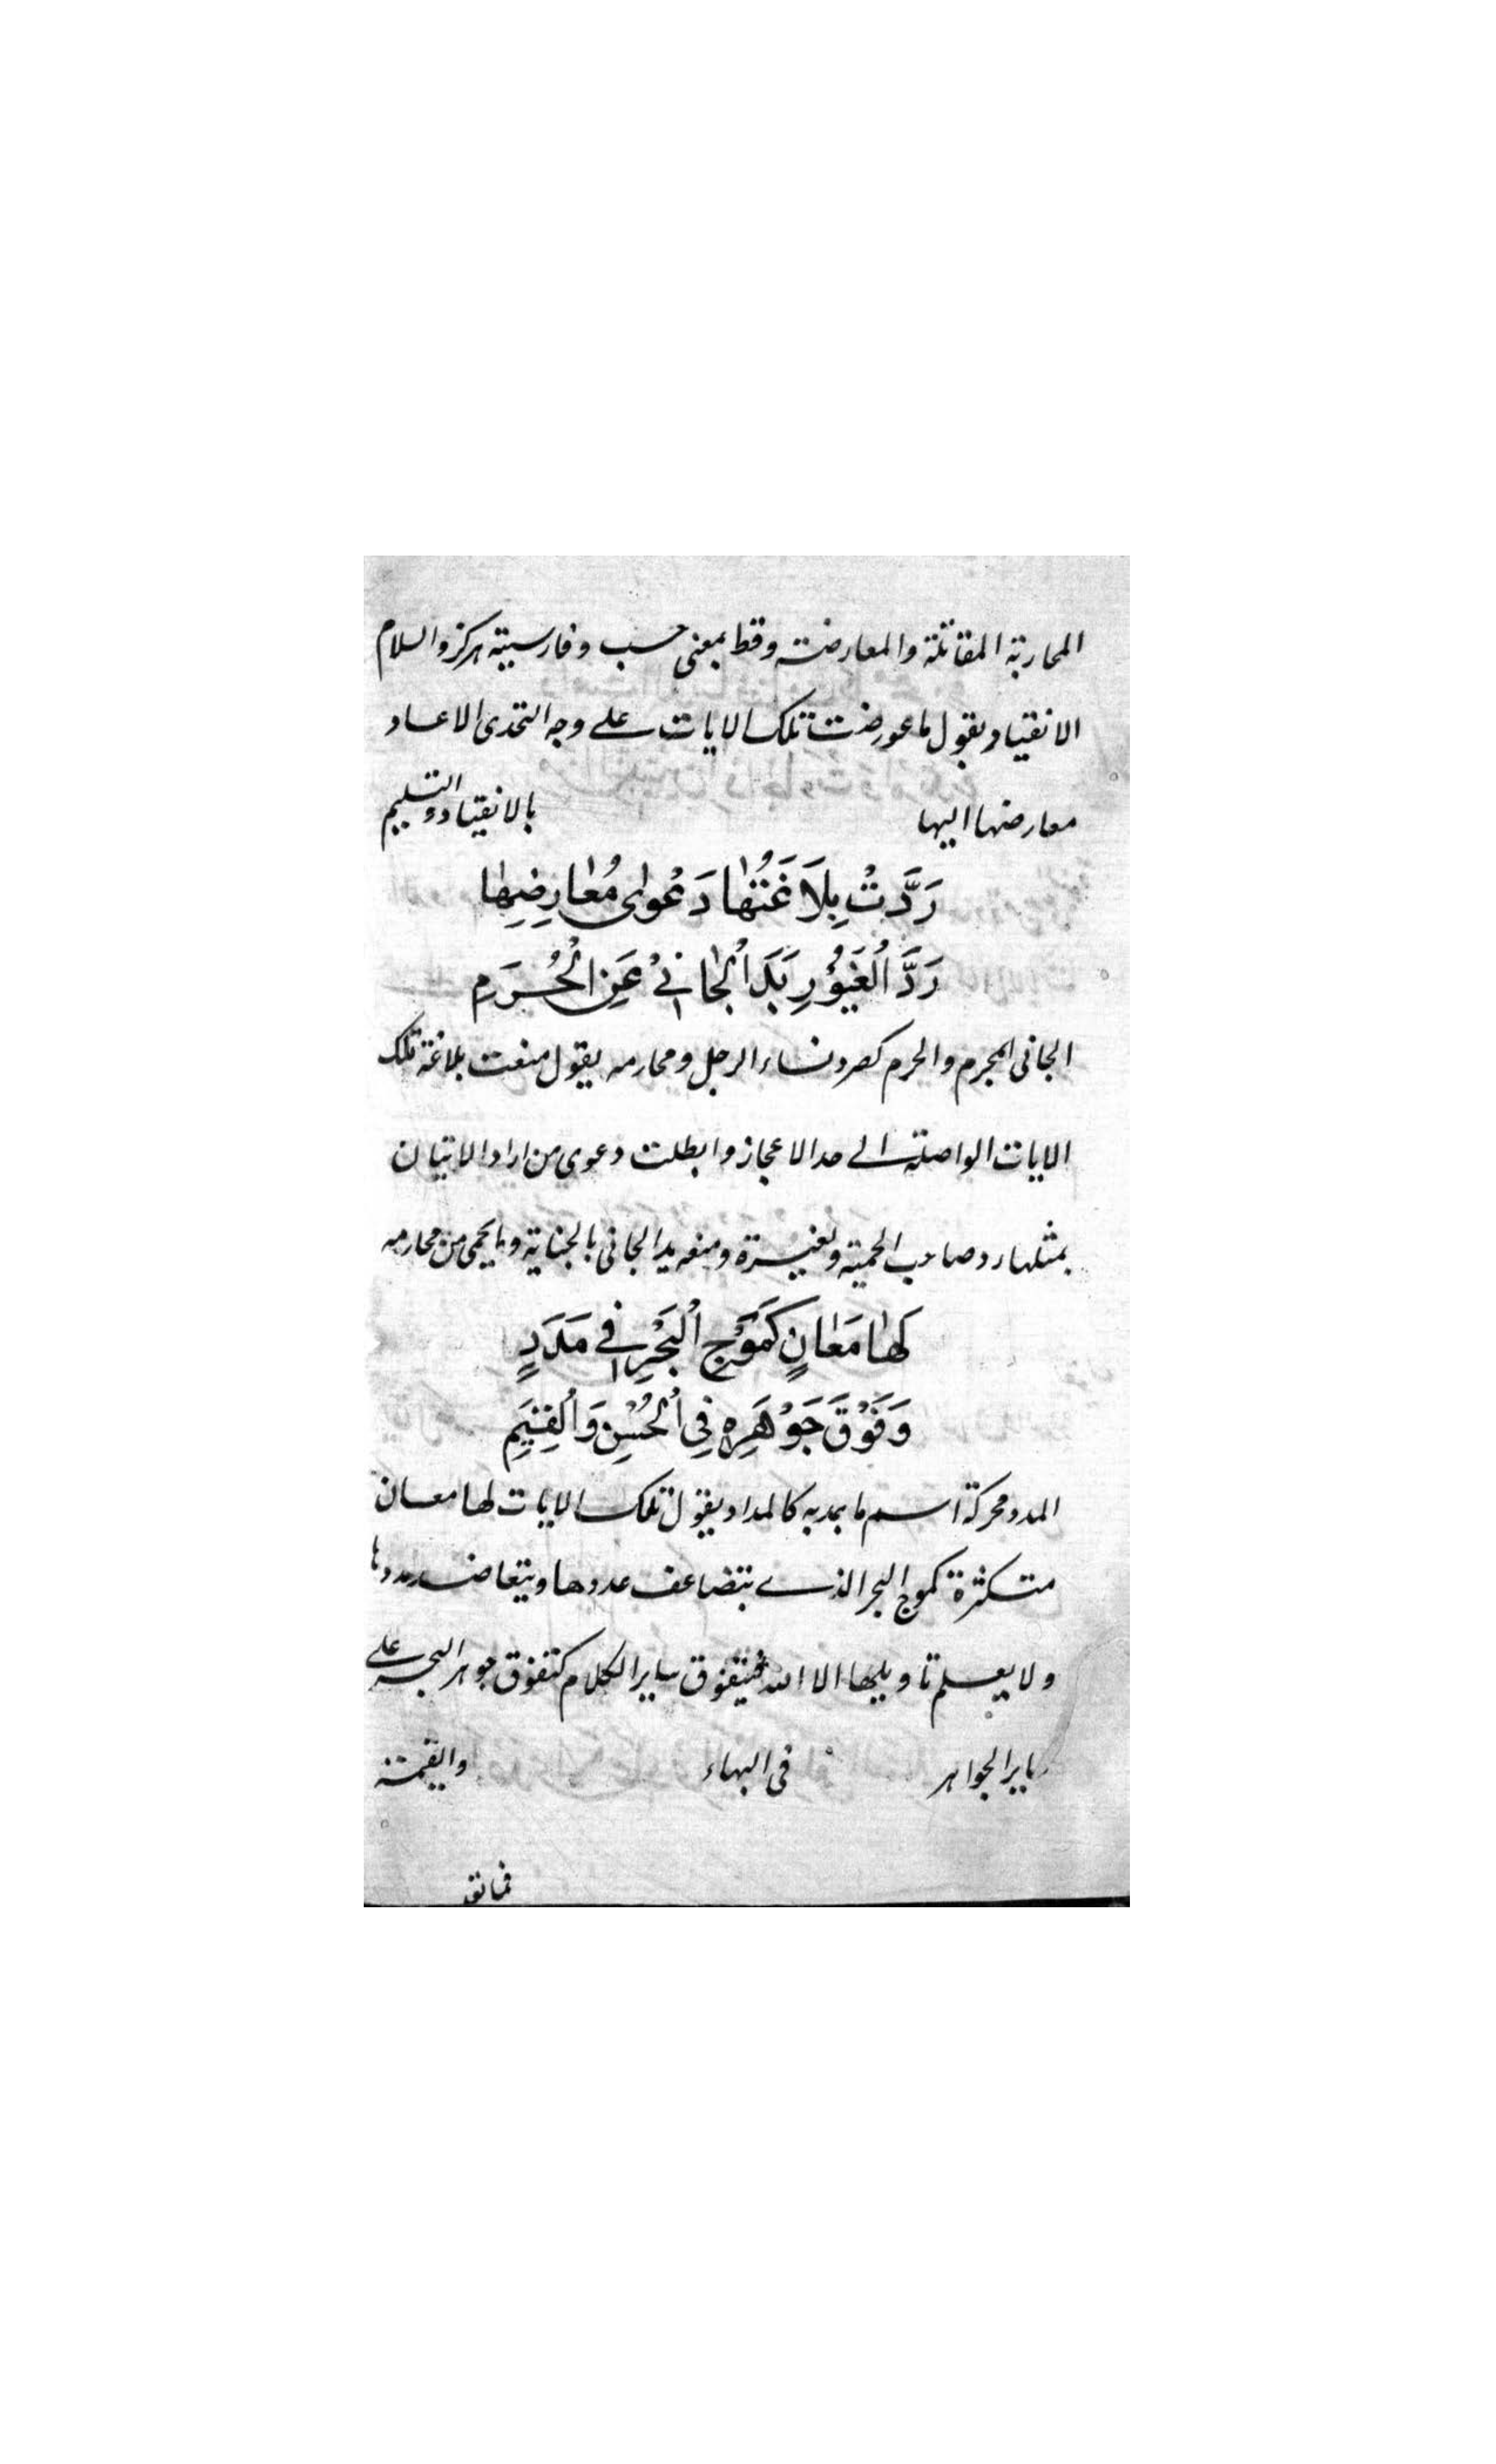 المحاربة المقاتلة والمعارضة وقط بمعنى حسب وفارسيته هركز والسلام
الانقياد يقول ما عورضت تلك الايات على وجه التحدى الا عاد
معارضها اليها بالانقياد والتسليم
رَدَّتْ بِلَاغَتُهَا دَعْوٰى مُعَارِضِهَا
رَدَّ الْغَيُوْرِ يَدَ الْجَانِيْ عَنِ الْحُرَمِ
الجانى المجرم والحرم كصرد نساء الرجل ومحارمه يقول منعت بلاغة تلك
الايات الواصلة الى حد الاعجاز وابطلت دعوى من اراد الاتيان
بمثلها رد صاحب الحمية والغيرة ومنعه يد الجانى بالجناية وما يحمى من محارمه
لَهَا مَعَانٍ كَمَوْجِ الْبَحْرِ فِي مَدَدٍ
وَفَوْقَ جَوْهَرِهِ فِي الْحُسْنِ وَالْقِيَمِ
المدد محركة اسم ما يمد به كالمداد يقول تلك الايات لها معان
متكثرة كموج البحر الذى يتضاعف عددها ويتعاضد مددها
ولا يعلم تاويلها الا الله فيتفوق ساير الكلام كتفوق جوهر البحر على
ساير الجواهر فى البهاء والقيمة